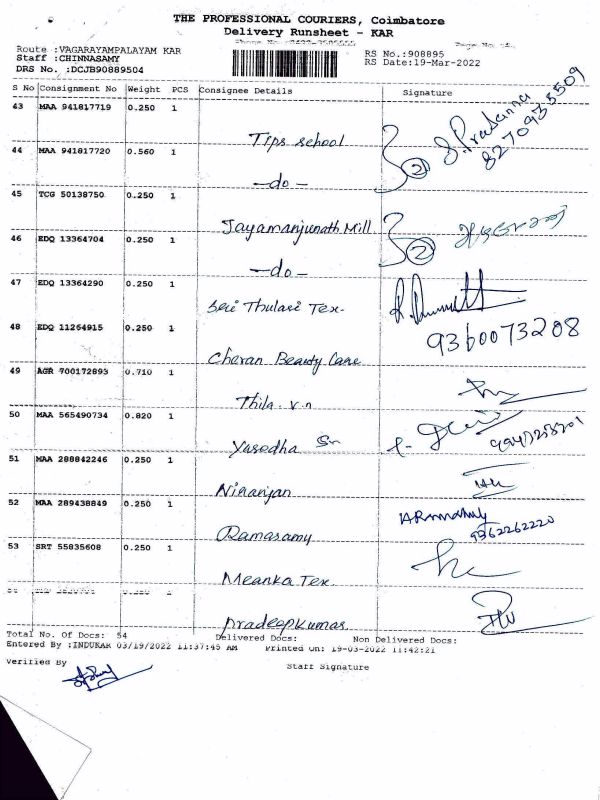 THE PROFESSIONAL COURIERS, Coimbatore
Delivery Runsheet - KAR
Route :VAGARAYAMPALAYAM KAR
Staff :CHINNASAMY
DRS No. :DCJB90889504
RS No.:908895
RS Date:19-Mar-2022
S No Consignment No Weight PCS Consignee Details Signature
43 MAA 941817719 0.250 1
Tips school
S. Prasanna
8270935509
44 MAA 941817720 0.560 1
-do-
2
45 TCG 50138750 0.250 1
Jayamanjunath Mill
46 EDQ 13364704 0.250 1
-do-
2
47 EDQ 13364290 0.250 1
Sri Thulasi Tex.
48 EDQ 11264915 0.250 1
9360073208
Cheran Beauty Care
49 AGR 700172893 0.710 1
Thila. v.n
50 MAA 565490734 0.820 1
Yasodha Sn
51 MAA 288842246 0.250 1
Niranjan
52 MAA 289438849 0.250 1
Ramasamy
9362262220
53 SRT 55835608 0.250 1
Meanka Tex.
Pradeepkumar.
Total No. Of Docs: 54 Delivered Docs: Non Delivered Docs:
Entered By :INDUKAR 03/19/2022 11:37:45 AM Printed On: 19-03-2022 11:42:21
Verified By Staff Signature